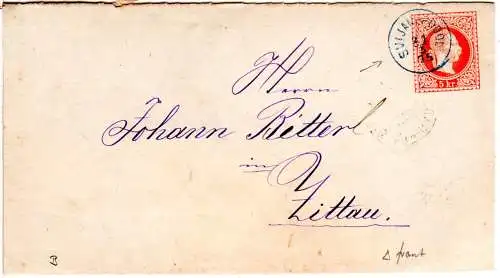 SVIJAN
5 kr
Herrn
Johann Bitterl
in
Zittau.
B
△ frant